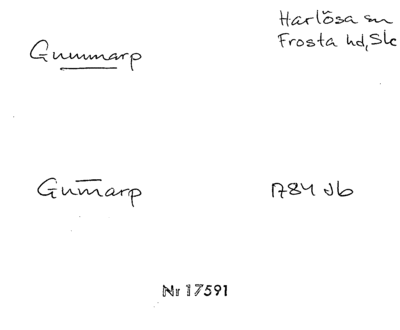 Gummarp
Harlösa sn
Frosta hd, Sk
Gum̄arp
1784 Jb
Nr 17591